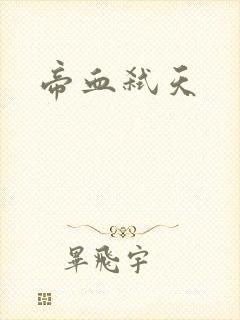 帝血弑天
畢飛宇